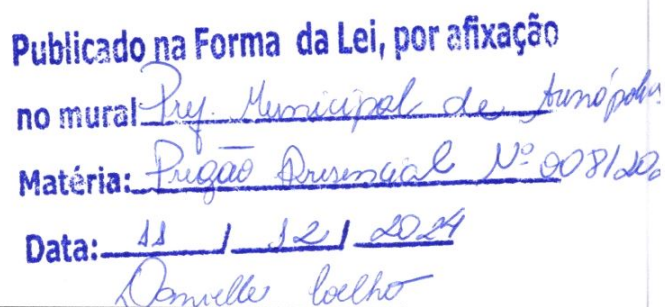 Publicado na Forma da Lei, por afixação
no mural Pref. Municipal de
Matéria: Pregão Presencial Nº 008/20
Data: 11 / 12 / 2024
Danielle Coelho